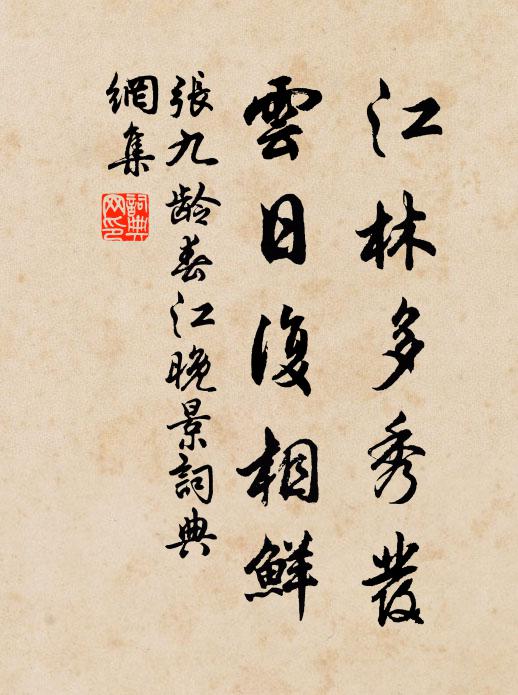 江林多秀發
雲日復相鮮
張九龄春江晚景詞典
網集
詞典
网印